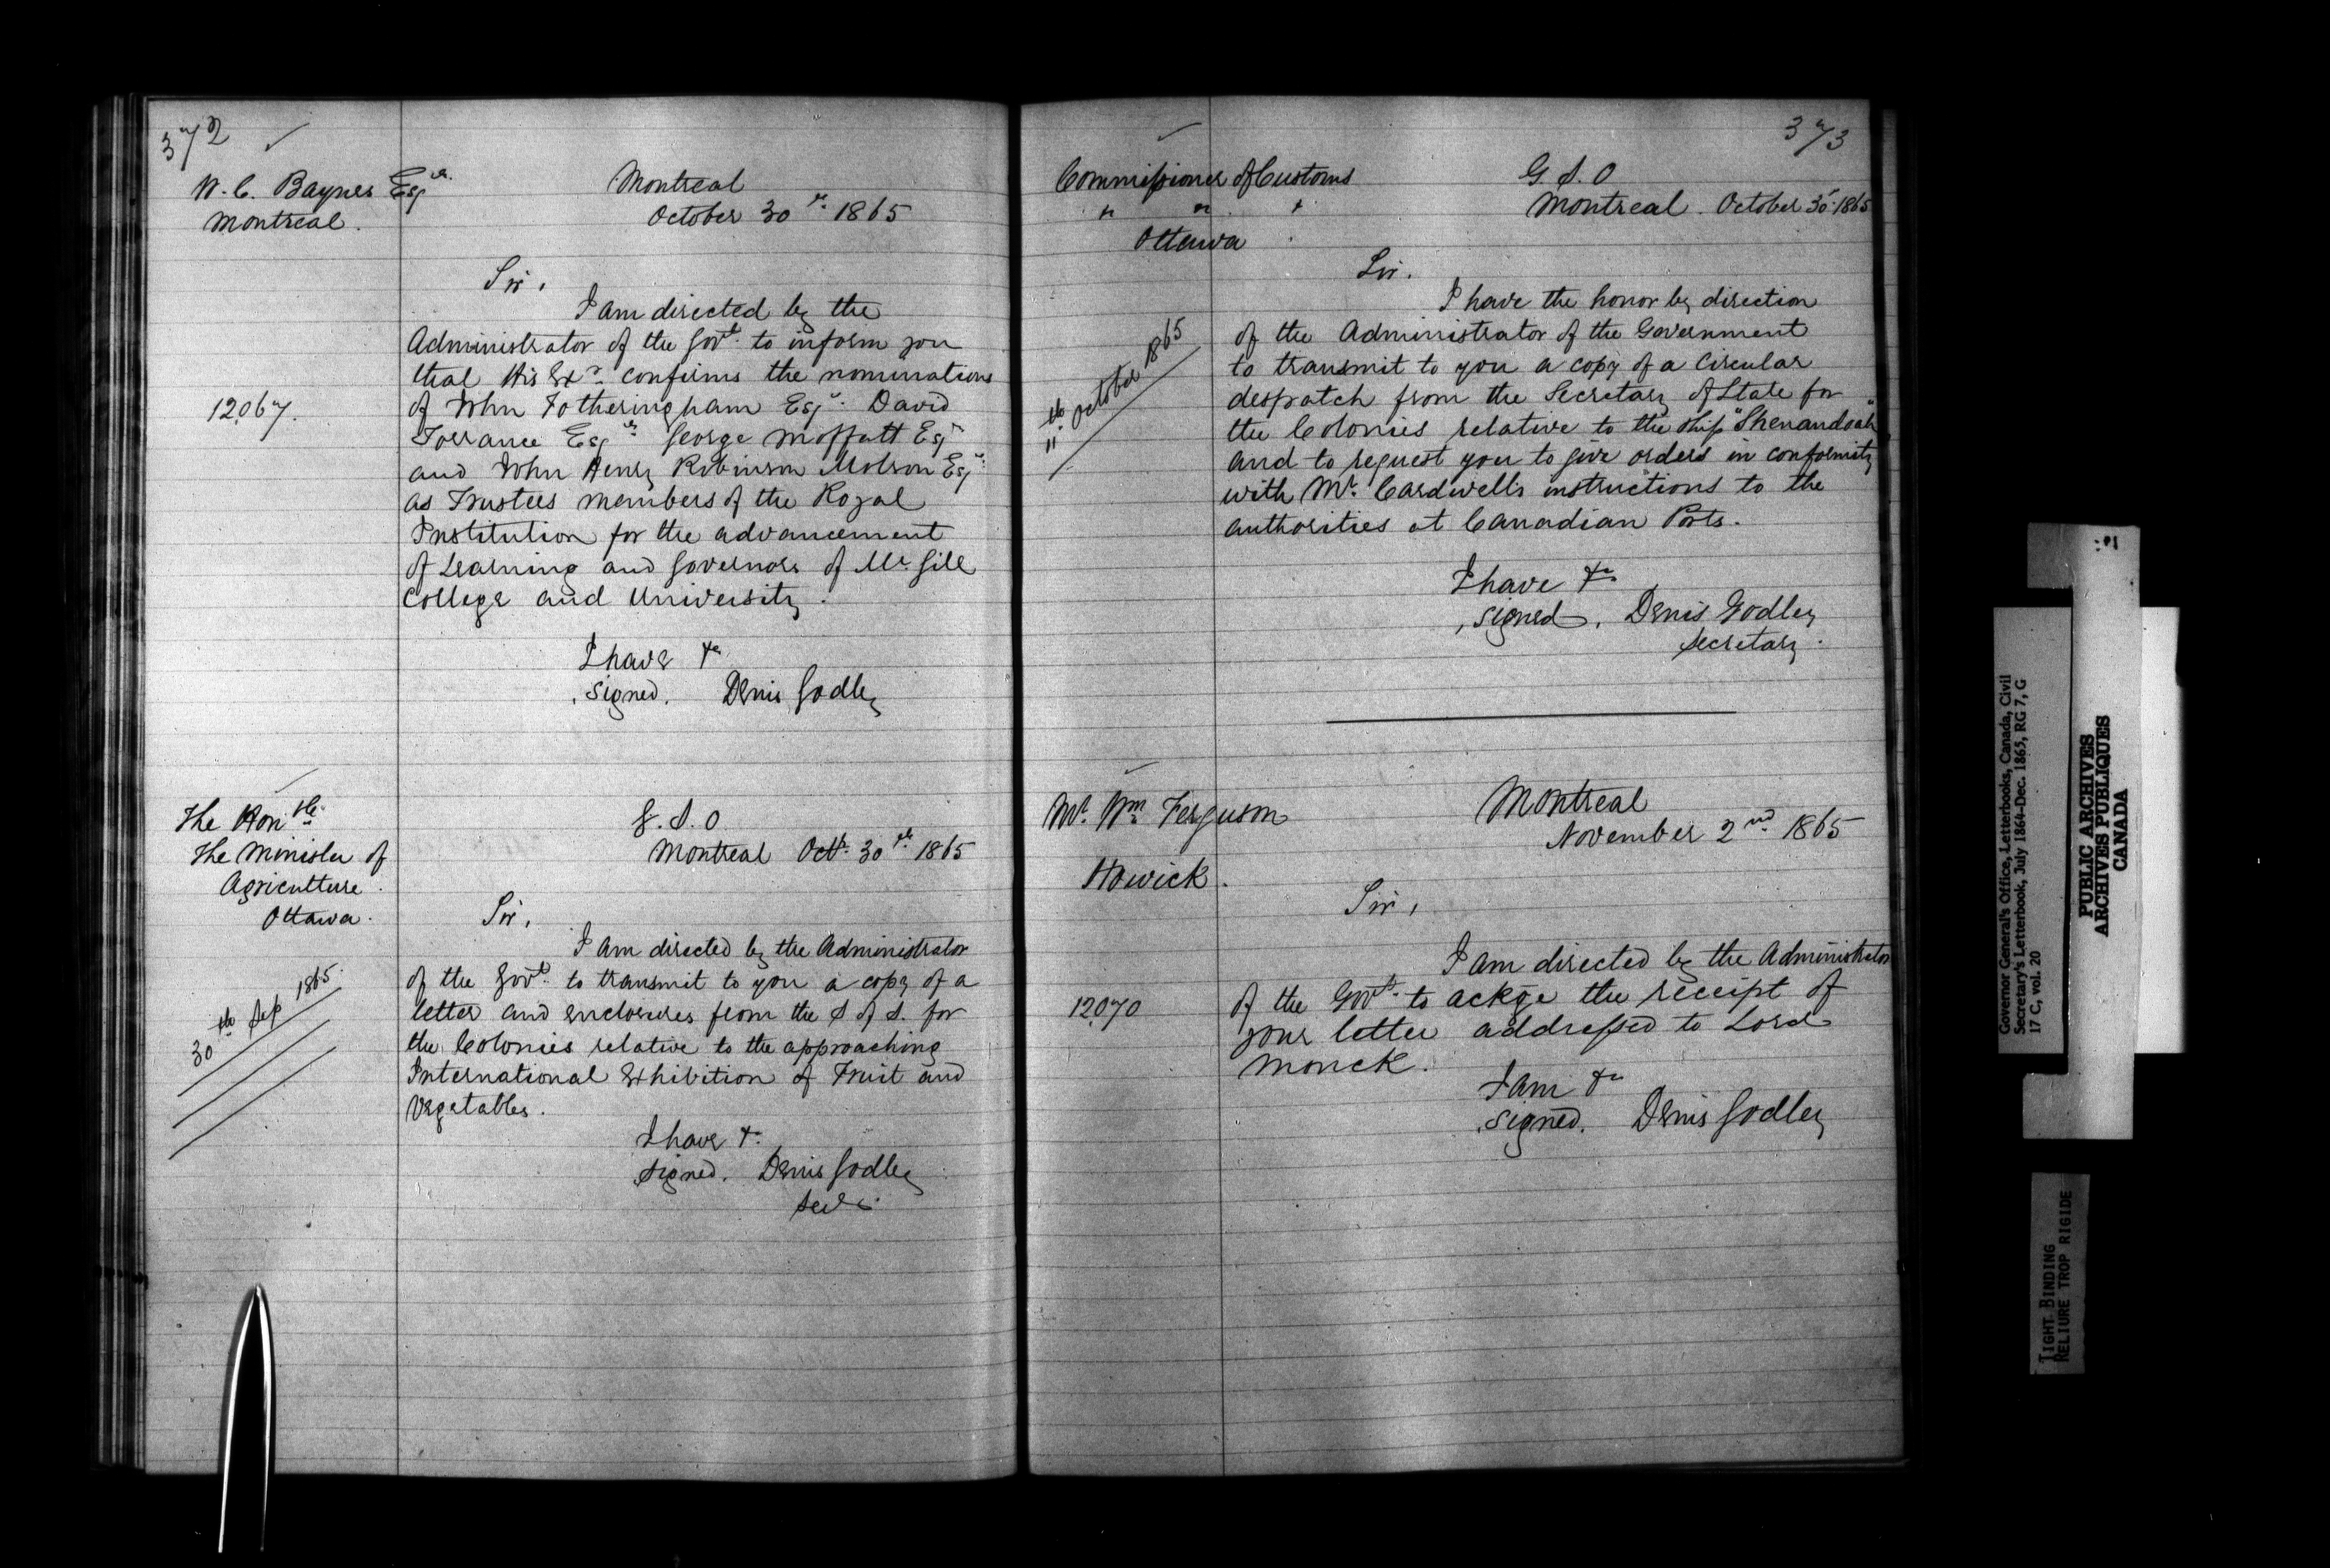 372
W. C. Baynes Esqr.
Montreal.
Montreal
October 30th 1865
Sir,
I am directed by the
Administrator of the Govt. to inform you
that His Exy. confirms the nominations
12067.
of John Fotheringham Esqr. David
Torrance Esqr. George Moffatt Esqr
and John Henry Robinson Molson Esqr.
as Trustees members of the Royal
Institution for the advancement
of Learning and Governors of McGill
College and University.
I have &c
signed. Denis Godley
The Honble.
The Minister of
Agriculture.
Ottawa.
G. S. O
Montreal Octr. 30th 1865
Sir,
30th Sep 1865.
I am directed by the Administrator
of the Govt. to transmit to you a copy of a
letter and enclosures from the S of S. for
the Colonies relative to the approaching
International Exhibition of Fruit and
Vegetables.
I have &c.
signed. Denis Godley
Secy.
373
Commissioner of Customs
" " "
Ottawa
G. S. O
Montreal. October 30. 1865
Sir.
11th. October 1865
I have the honor by direction
of the Administrator of the Government
to transmit to you a copy of a Circular
despatch from the Secretary of State for
the Colonies relative to the Ship "Shenandoah"
and to request you to give orders in conformity
with Mr. Cardwell's instructions to the
authorities at Canadian Ports.
I have &c
signed. Denis Godley
Secretary.
Mr. Wm Ferguson
Howick.
Montreal
November 2nd. 1865
Sir,
I am directed by the Administrator
12070
of the Govt. to ackge the receipt of
your letter addressed to Lord
Monck.
I am &c
signed. Denis Godley
Governor General's Office, Letterbooks, Canada, Civil
Secretary's Letterbook, July 1864-Dec. 1865, RG 7, G
17 C, vol. 20
PUBLIC ARCHIVES
ARCHIVES PUBLIQUES
CANADA
TIGHT BINDING
RELIURE TROP RIGIDE